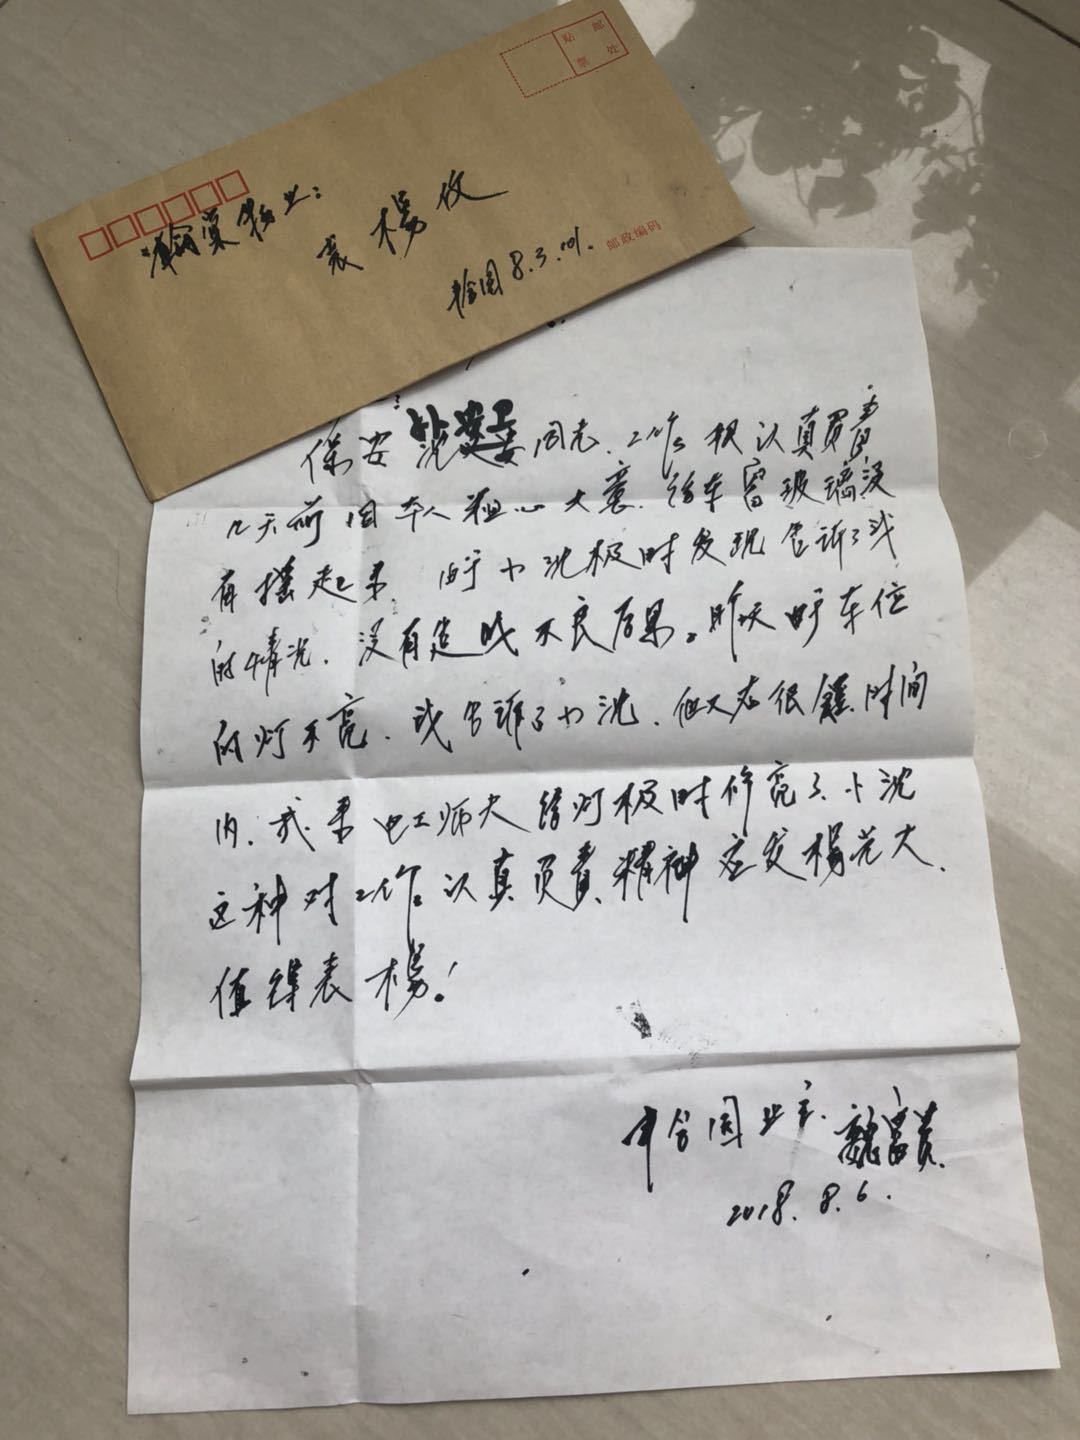 贴 邮
票 处
瀚棠物业:
袁 楊收
8.3.01.
邮政编码
保安沈 同志、工作极认真负责
几天前因本人粗心大意、轿车窗玻璃没
有摇起来、由于小沈极时发现告诉了我
的情况、没有造成不良后果。昨天由于车位
的灯不亮、我告诉了小沈、但又在很短时间
内、求电工师夫给灯极时修亮了、小沈
这种对工作认真负责精神应发楊光大、
值得表楊!
园业主、魏富贵
2018.8.6.